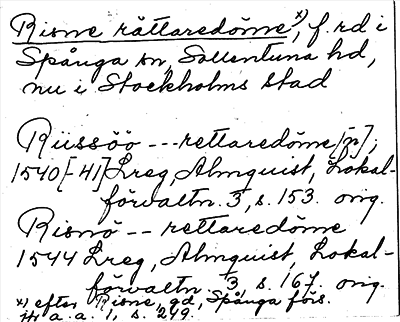 Risne rättaredöme x), f. rd i
Spånga sn, Sollentuna hd,
nu i Stockholms stad
Riissöö --- rettaredöme[n];
1540[-41] Lreg, Almquist, Lokal-
förvaltn. 3, s. 153. orig.
Risnö -- rettaredöme
1544 Lreg, Almquist, Lokal-
förvaltn. 3, s. 167. orig.
x) efter Risne, gd, Spånga förs.
a. a. 1, s. 249.